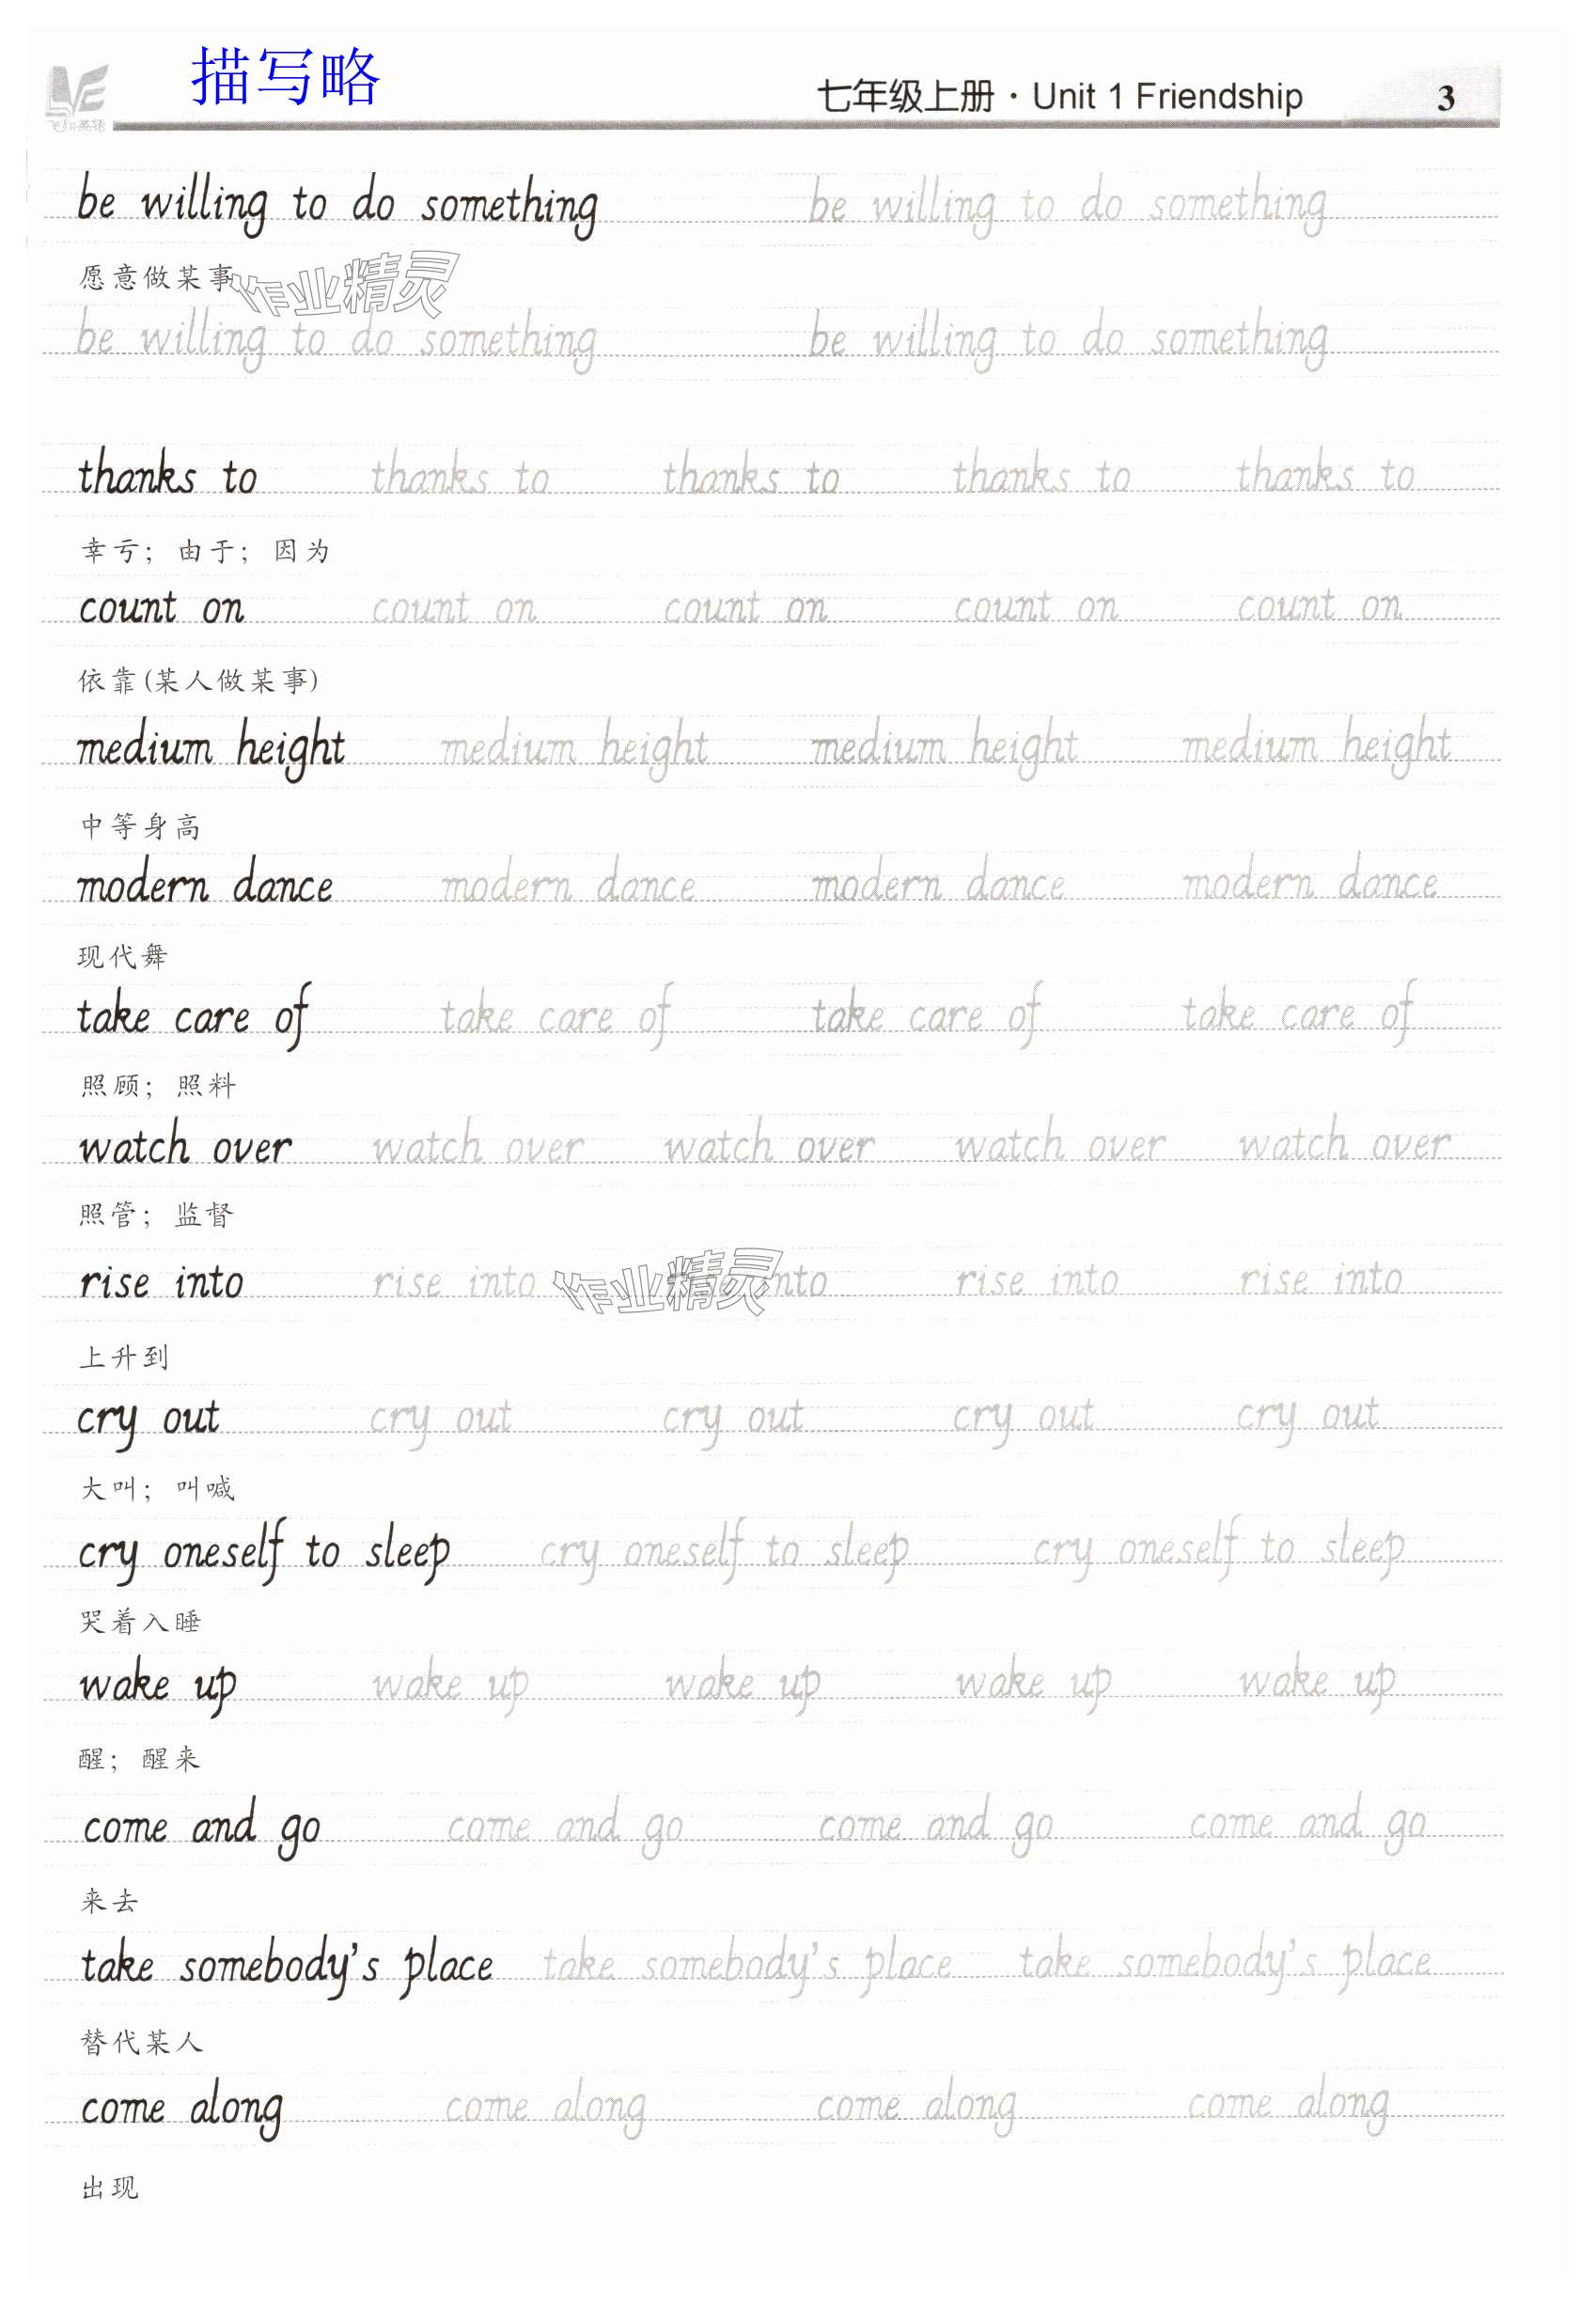 描写略
七年级上册·Unit 1 Friendship 3
be willing to do something be willing to do something
愿意做某事
作业精灵
be willing to do something be willing to do something
thanks to thanks to thanks to thanks to thanks to
幸亏；由于；因为
count on count on count on count on count on
依靠(某人做某事)
medium height medium height medium height medium height
中等身高
modern dance modern dance modern dance modern dance
现代舞
take care of take care of take care of take care of
照顾；照料
watch over watch over watch over watch over watch over
照管；监督
rise into rise into rise into rise into rise into
作业精灵
上升到
cry out cry out cry out cry out cry out
大叫；叫喊
cry oneself to sleep cry oneself to sleep cry oneself to sleep
哭着入睡
wake up wake up wake up wake up wake up
醒；醒来
come and go come and go come and go come and go
来去
take somebody's place take somebody's place take somebody's place
替代某人
come along come along come along come along
出现